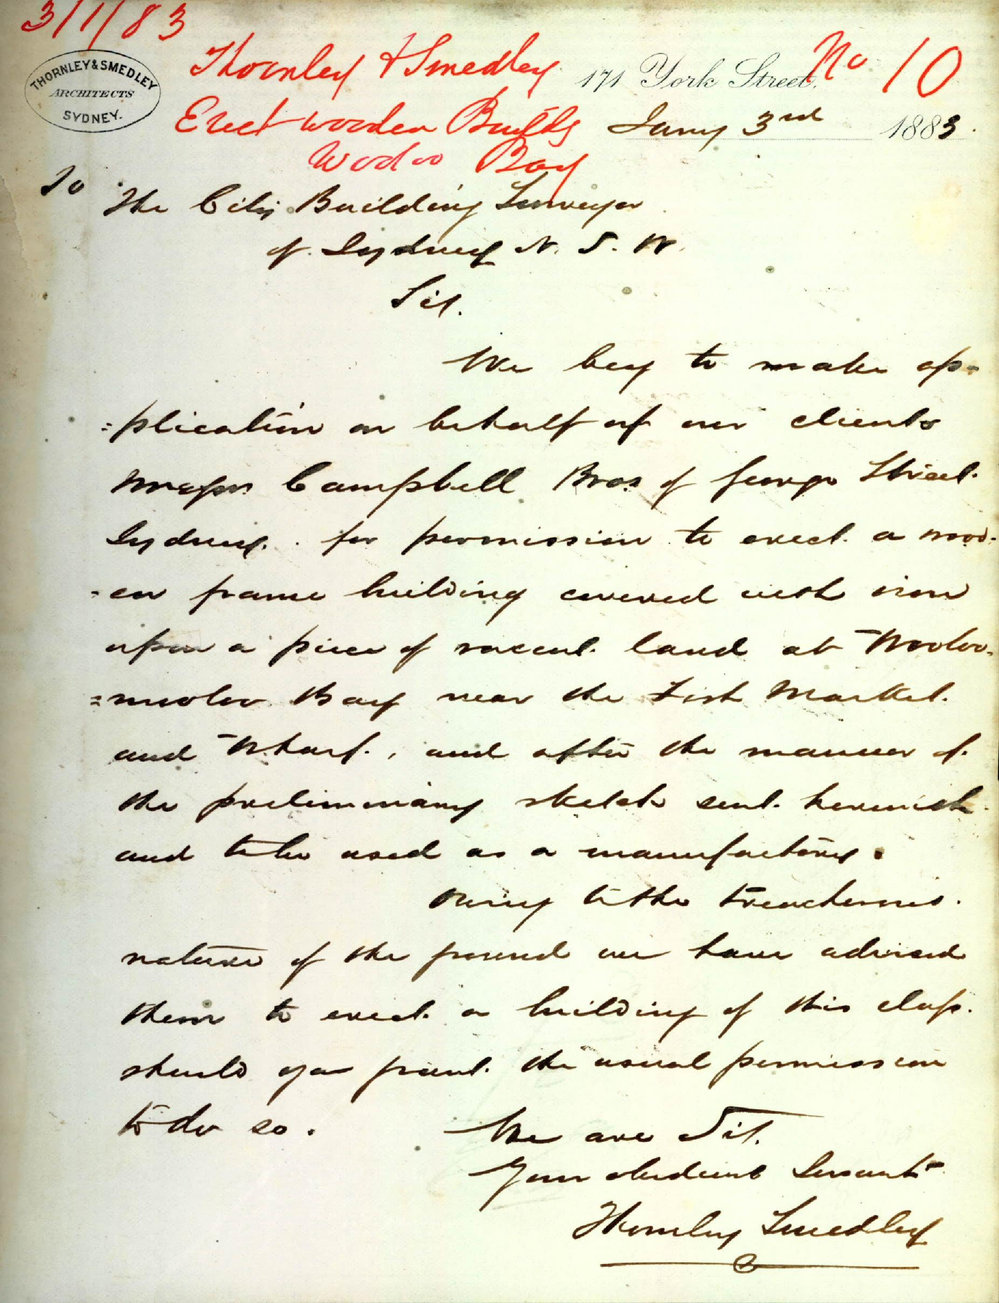 3/1/83
THORNLEY & SMEDLEY
ARCHITECTS
SYDNEY.
Thornley & Smedley
171 York Street.
No 10
Erect wooden Buildg
Jany 3rd 1883.
Wooloo Bay
To
The City Building Surveyor
of Sydney N. S. W.
Sir.
We beg to make ap=
=plication on behalf of our clients
Messrs Campbell Bros of George Street.
Sydney. for permission to erect a wood-
-en frame building covered with iron
upon a piece of vacant land at Wooloo-
=mooloo Bay near the Fish Market.
and Wharf., and after the manner of
the preliminary sketch sent herewith.
and to be used as a manufactory.
Owing to the treacherous.
nature of the ground we have advised
them to erect a building of this class.
should you grant the usual permission
to do so.
We are Sir.
Your obedient Servants
Thornley Smedley